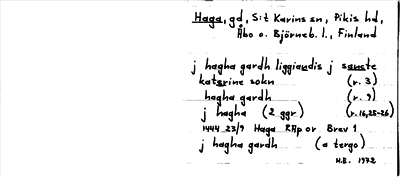 Haga, gd, S:t Karins sn, Pikis hd,
Åbo o. Björneb. l., Finland
j hagha gardh liggiandis j sancte
katerine sokn (r. 3)
hagha gardh (r. 9)
j hagha (2 ggr) (r. 16, 25-26)
1444 23/9 Haga RAp or Brev 1
j hagha gardh (a tergo)
H.B. 1972